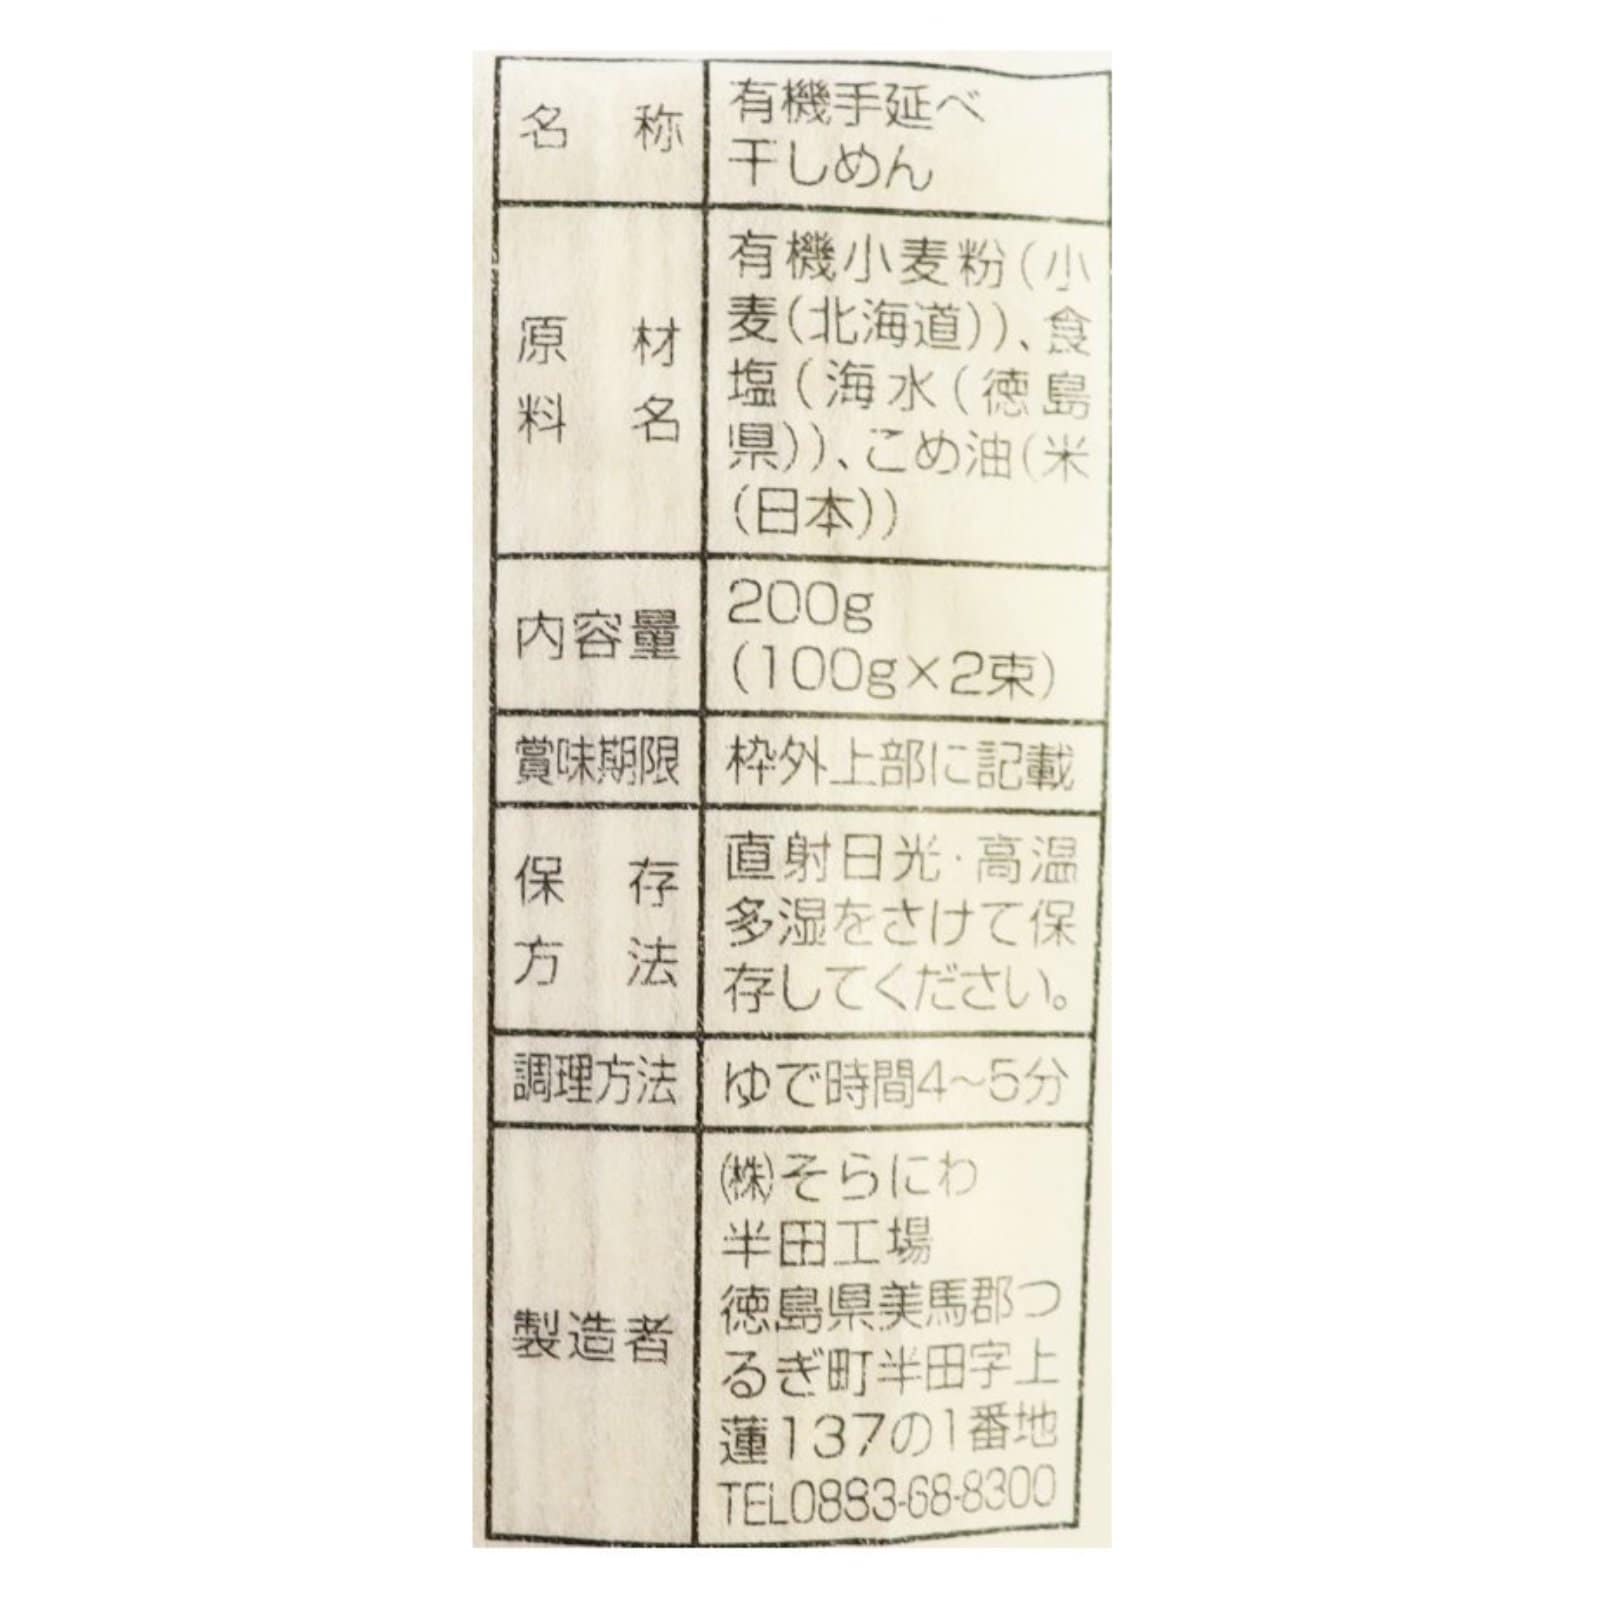 名称
有機手延べ
干しめん
原材
料名
有機小麦粉(小
麦(北海道))、食
塩(海水(徳島
県))、こめ油(米
(日本))
内容量
200g
(100g×2束)
賞味期限
枠外上部に記載
保存
方法
直射日光・高温
多湿をさけて保
存してください。
調理方法
ゆで時間4~5分
製造者
㈱そらにわ
半田工場
徳島県美馬郡つ
るぎ町半田字上
蓮137の1番地
TEL0883-68-8300